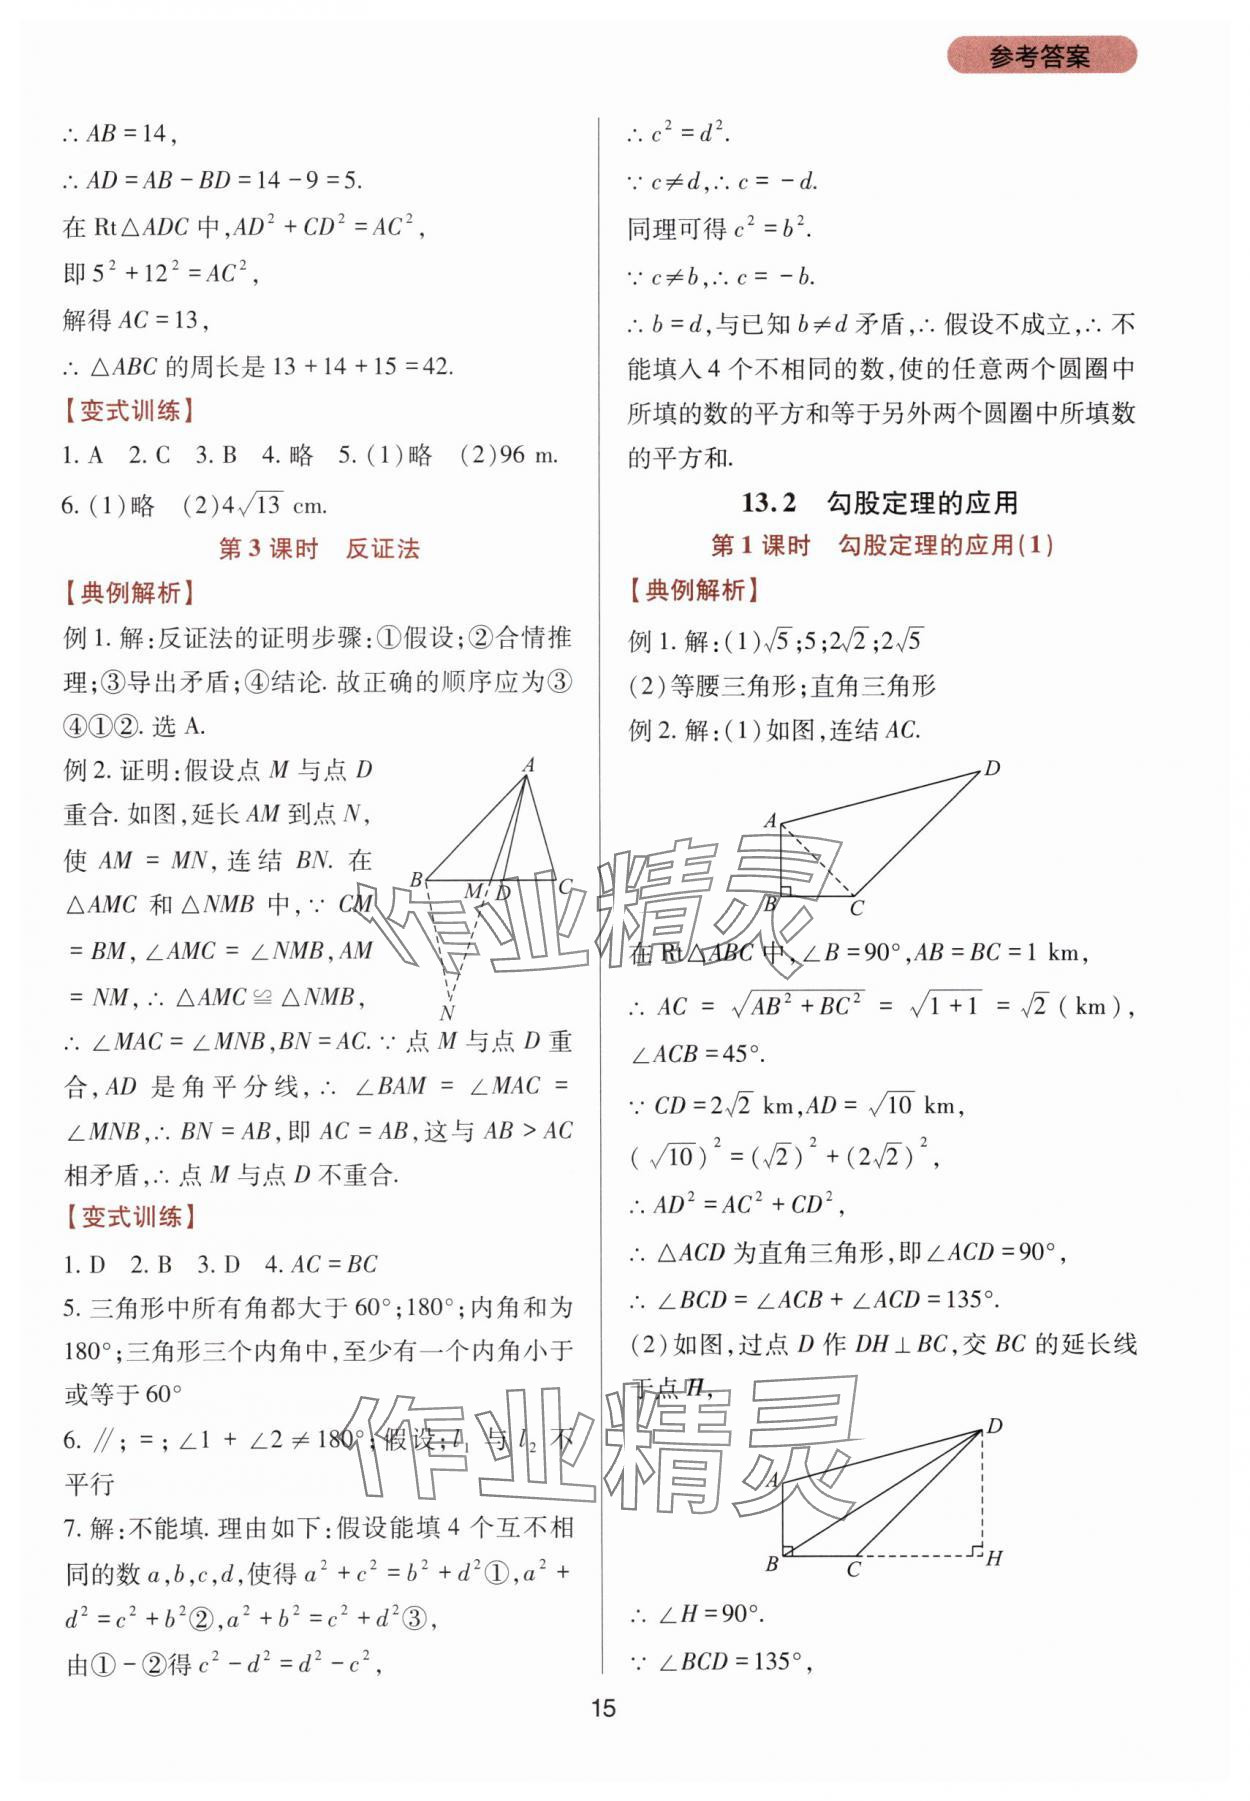 参考答案
∴ AB = 14,
∴ AD = AB − BD = 14 − 9 = 5.
在 Rt△ADC 中, AD² + CD² = AC²,
即 5² + 12² = AC²,
解得 AC = 13,
∴ △ABC 的周长是 13 + 14 + 15 = 42.
【变式训练】
1. A 2. C 3. B 4. 略 5. (1)略 (2)96 m.
6. (1)略 (2)4√13 cm.
第 3 课时 反证法
【典例解析】
例 1. 解:反证法的证明步骤:①假设;②合情推
理;③导出矛盾;④结论. 故正确的顺序应为③
④①②. 选 A.
例 2. 证明:假设点 M 与点 D
重合. 如图,延长 AM 到点 N,
使 AM = MN, 连结 BN. 在
△AMC 和 △NMB 中,∵ CM
= BM, ∠AMC = ∠NMB, AM
= NM, ∴ △AMC ≌ △NMB,
A
B
M
D
C
N
∴ ∠MAC = ∠MNB, BN = AC. ∵ 点 M 与点 D 重
合, AD 是角平分线, ∴ ∠BAM = ∠MAC =
∠MNB, ∴ BN = AB, 即 AC = AB, 这与 AB > AC
相矛盾, ∴ 点 M 与点 D 不重合.
【变式训练】
1. D 2. B 3. D 4. AC = BC
5. 三角形中所有角都大于 60°;180°;内角和为
180°;三角形三个内角中,至少有一个内角小于
或等于 60°
6. ∥; =; ∠1 + ∠2 ≠ 180°;假设;l₁ 与 l₂ 不
平行
7. 解:不能填. 理由如下:假设能填 4 个互不相
同的数 a,b,c,d,使得 a² + c² = b² + d²①, a² +
d² = c² + b²②, a² + b² = c² + d²③,
由①−②得 c² − d² = d² − c²,
∴ c² = d².
∵ c≠d, ∴ c = −d.
同理可得 c² = b².
∵ c≠b, ∴ c = −b.
∴ b = d, 与已知 b≠d 矛盾, ∴ 假设不成立, ∴ 不
能填入 4 个不相同的数,使的任意两个圆圈中
所填的数的平方和等于另外两个圆圈中所填数
的平方和.
13.2 勾股定理的应用
第 1 课时 勾股定理的应用(1)
【典例解析】
例 1. 解:(1)√5;5;2√2;2√5
(2)等腰三角形;直角三角形
例 2. 解:(1)如图,连结 AC.
D
A
B
C
在 Rt△ABC 中, ∠B = 90°, AB = BC = 1 km,
∴ AC = √(AB² + BC²) = √(1 + 1) = √2 (km),
∠ACB = 45°.
∵ CD = 2√2 km, AD = √10 km,
(√10)² = (√2)² + (2√2)²,
∴ AD² = AC² + CD²,
∴ △ACD 为直角三角形,即∠ACD = 90°,
∴ ∠BCD = ∠ACB + ∠ACD = 135°.
(2)如图,过点 D 作 DH⊥BC, 交 BC 的延长线
于点 H,
D
A
B
C
H
∴ ∠H = 90°.
∵ ∠BCD = 135°,
15
作业精灵
作业精灵